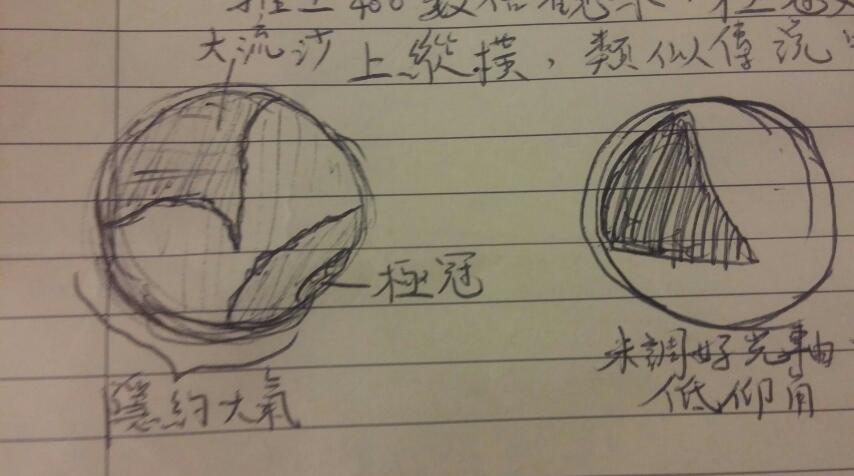 上縱橫，類似傳說
大流沙
極冠
隱約大氣
未調好光軸
低仰角